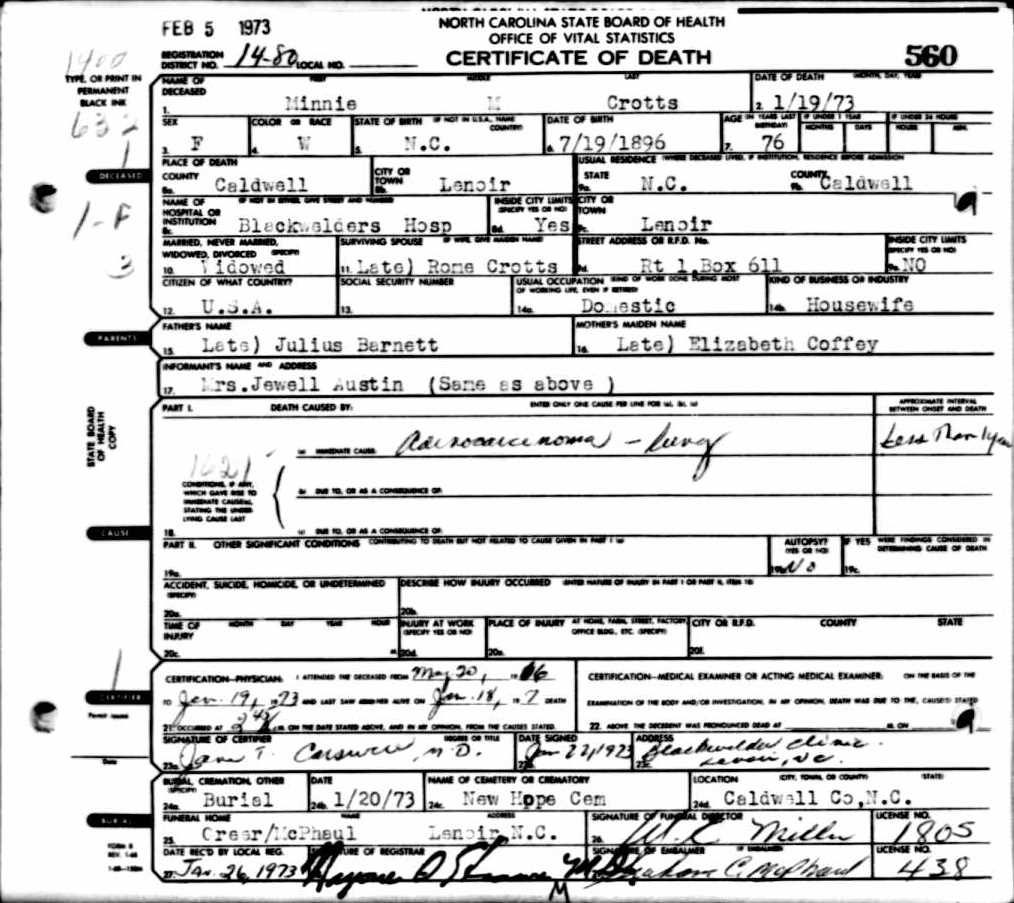 FEB 5 1973
NORTH CAROLINA STATE BOARD OF HEALTH
OFFICE OF VITAL STATISTICS
CERTIFICATE OF DEATH
560
REGISTRATION DISTRICT NO. 14-80 LOCAL NO.
1400
TYPE, OR PRINT IN PERMANENT BLACK INK
632
1
NAME OF DECEASED FIRST MIDDLE LAST DATE OF DEATH (MONTH, DAY, YEAR)
1. Minnie M Crotts 2. 1/19/73
SEX COLOR OR RACE STATE OF BIRTH (IF NOT IN U.S.A., NAME COUNTRY) DATE OF BIRTH AGE (IN YEARS LAST BIRTHDAY) IF UNDER 1 YEAR MONTHS DAYS IF UNDER 24 HOURS HOURS MIN.
3. F 4. W 5. N.C. 6. 7/19/1896 7. 76
DECEASED
PLACE OF DEATH USUAL RESIDENCE (WHERE DECEASED LIVED, IF INSTITUTION, RESIDENCE BEFORE ADMISSION)
COUNTY CITY OR TOWN STATE COUNTY
8a. Caldwell 8b. Lenoir 9a. N.C. 9b. Caldwell
1-F
NAME OF HOSPITAL OR INSTITUTION (IF NOT IN EITHER, GIVE STREET AND NUMBER) INSIDE CITY LIMITS (SPECIFY YES OR NO) CITY OR TOWN
8c. Blackwelders Hosp 8d. Yes 9c. Lenoir
3
MARRIED, NEVER MARRIED, WIDOWED, DIVORCED (SPECIFY) SURVIVING SPOUSE (IF WIFE, GIVE MAIDEN NAME) STREET ADDRESS OR R.F.D. No. INSIDE CITY LIMITS (SPECIFY YES OR NO)
10. Widowed 11. Late) Rome Crotts 9d. Rt 1,Box 611 9e. NO
CITIZEN OF WHAT COUNTRY? SOCIAL SECURITY NUMBER USUAL OCCUPATION (KIND OF WORK DONE DURING MOST OF WORKING LIFE, EVEN IF RETIRED) KIND OF BUSINESS OR INDUSTRY
12. U.S.A. 13. 14a. Domestic 14b. Housewife
PARENTS
FATHER'S NAME MOTHER'S MAIDEN NAME
15. Late) Julius Barnett 16. Late) Elizabeth Coffey
INFORMANT'S NAME AND ADDRESS
17. Mrs.Jewell Austin (Same as above )
STATE BOARD OF HEALTH COPY
PART I. DEATH CAUSED BY: ENTER ONLY ONE CAUSE PER LINE FOR (a), (b), (c) APPROXIMATE INTERVAL BETWEEN ONSET AND DEATH
(a) IMMEDIATE CAUSE: Adenocarcinoma - lung Less than 1 year
1621
CONDITIONS, IF ANY, WHICH GAVE RISE TO IMMEDIATE CAUSE(a), STATING THE UNDERLYING CAUSE LAST
(b) DUE TO, OR AS A CONSEQUENCE OF:
CAUSE
18. (c) DUE TO, OR AS A CONSEQUENCE OF:
PART II. OTHER SIGNIFICANT CONDITIONS CONTRIBUTING TO DEATH BUT NOT RELATED TO CAUSE GIVEN IN PART I (a) AUTOPSY? (YES OR NO) IF YES WERE FINDINGS CONSIDERED IN DETERMINING CAUSE OF DEATH
19a. 19b. No 19c.
ACCIDENT, SUICIDE, HOMICIDE, OR UNDETERMINED (SPECIFY) DESCRIBE HOW INJURY OCCURRED (ENTER NATURE OF INJURY IN PART I OR PART II, ITEM 18)
20a. 20b.
TIME OF INJURY MONTH DAY YEAR HOUR INJURY AT WORK (SPECIFY YES OR NO) PLACE OF INJURY AT HOME, FARM, STREET, FACTORY, OFFICE BLDG., ETC. (SPECIFY) CITY OR R.F.D. COUNTY STATE
20c. M. 20d. 20e. 20f.
CERTIFICATION—PHYSICIAN: I ATTENDED THE DECEASED FROM May 20, 1966
TO Jan. 19, 1973 AND LAST SAW HER/HIM ALIVE ON Jan. 18, 197 DEATH
21. OCCURRED AT M. ON THE DATE STATED ABOVE, AND IN MY OPINION, FROM THE CAUSES STATED.
CERTIFICATION—MEDICAL EXAMINER OR ACTING MEDICAL EXAMINER: ON THE BASIS OF THE
EXAMINATION OF THE BODY AND/OR INVESTIGATION, IN MY OPINION, DEATH WAS DUE TO THE, CAUSE(S) STATED
22. ABOVE THE DECEDENT WAS PRONOUNCED DEAD AT M. ON
CERTIFIER
SIGNATURE OF CERTIFIER DEGREE OR TITLE DATE SIGNED ADDRESS
23a. T. M.D. 23b. Jan 22, 1973 23c. Blackwelder Clinic
Lenoir, N.C.
Date
BURIAL, CREMATION, OTHER (SPECIFY) DATE NAME OF CEMETERY OR CREMATORY LOCATION (CITY, TOWN, OR COUNTY) (STATE)
24a. Burial 24b. 1/20/73 24c. New Hope Cem 24d. Caldwell Co,N.C.
BURIAL
FUNERAL HOME NAME ADDRESS SIGNATURE OF FUNERAL DIRECTOR LICENSE NO.
25. Greer/McPhaul Lenoir N.C. 26. Miller 1805
FORM 8
DATE REC'D BY LOCAL REG. SIGNATURE OF REGISTRAR SIGNATURE OF EMBALMER IF EMBALMED LICENSE NO.
27. Jan. 26, 1973 Graham C. McPhaul 438